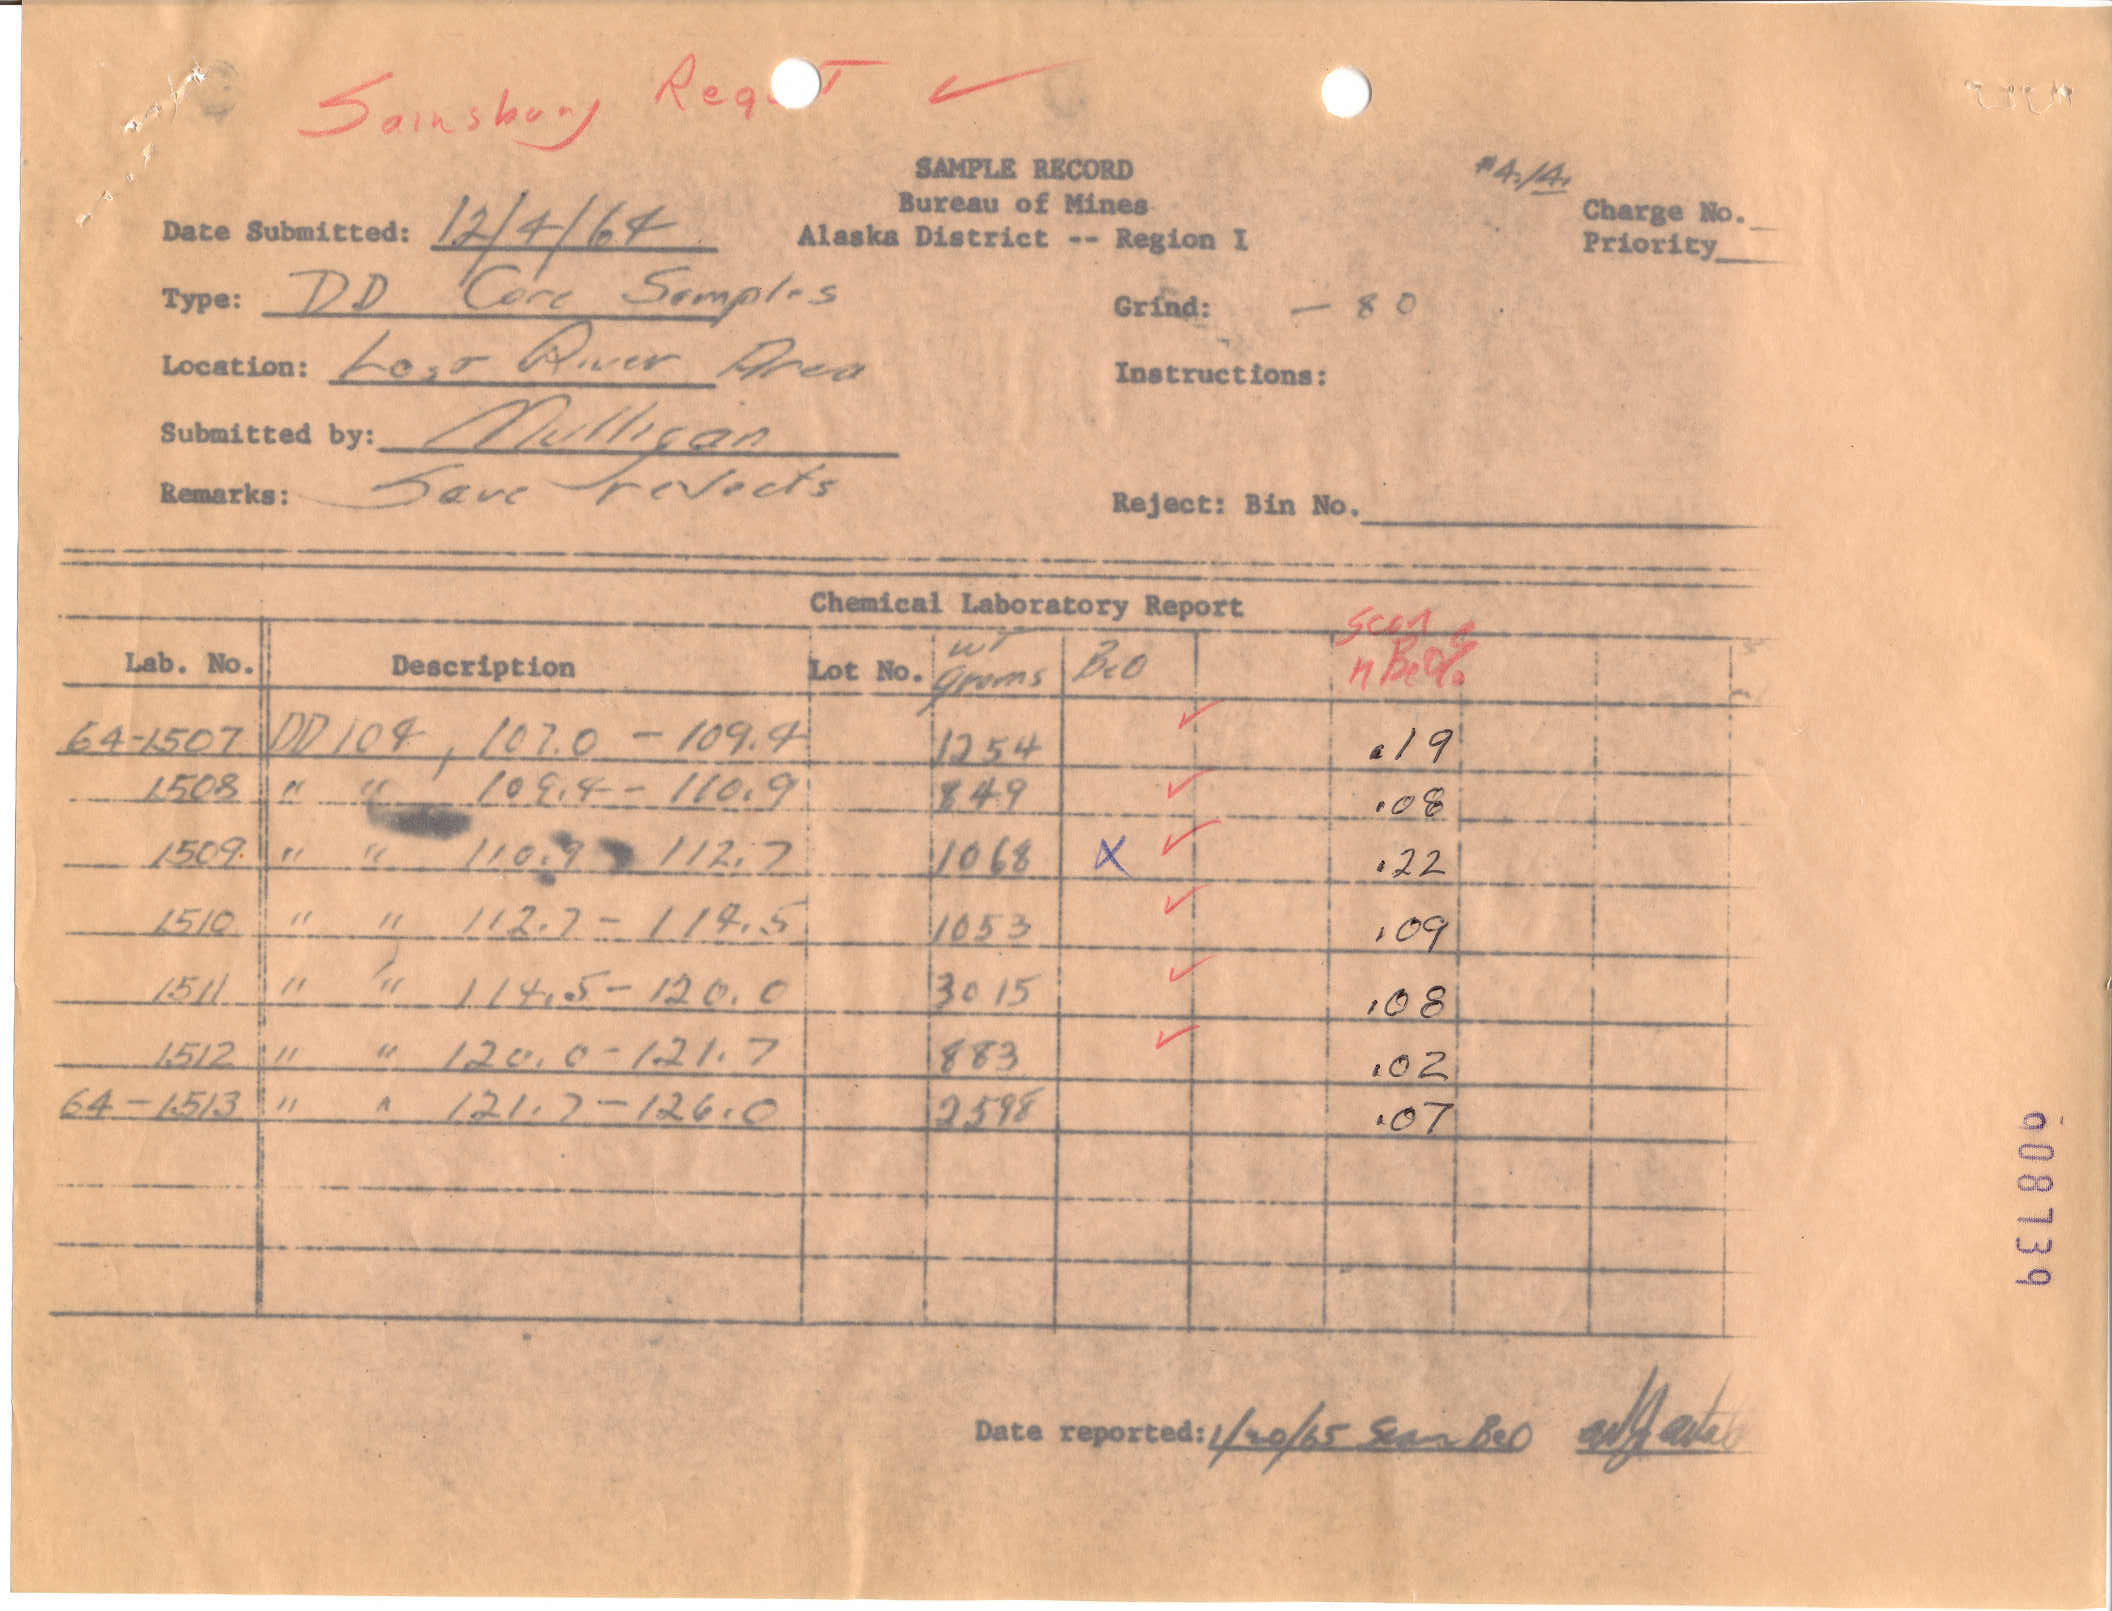 Sainsbury Reqst ✓
SAMPLE RECORD
Bureau of Mines
Alaska District -- Region I
#4./4.
Charge No.
Priority
Date Submitted: 12/4/64
Type: DD Core Samples
Grind: - 80
Location: Lost River Area
Instructions:
Submitted by: Mulligan
Remarks: Save rejects
Reject: Bin No.
Chemical Laboratory Report
Lab. No. Description Lot No. wt grams BeO scan n BeO%
64-1507 DD 104, 107.0 - 109.4 1254 ✓ .19
1508 " " 109.4 - 110.9 849 ✓ .08
1509 " " 110.9 - 112.7 1068 X ✓ .22
1510 " " 112.7 - 114.5 1053 ✓ .09
1511 " " 114.5 - 120.0 3015 ✓ .08
1512 " " 120.0 - 121.7 883 ✓ .02
64-1513 " " 121.7 - 126.0 2598 .07
Date reported: 1/20/65 Scan BeO
908739